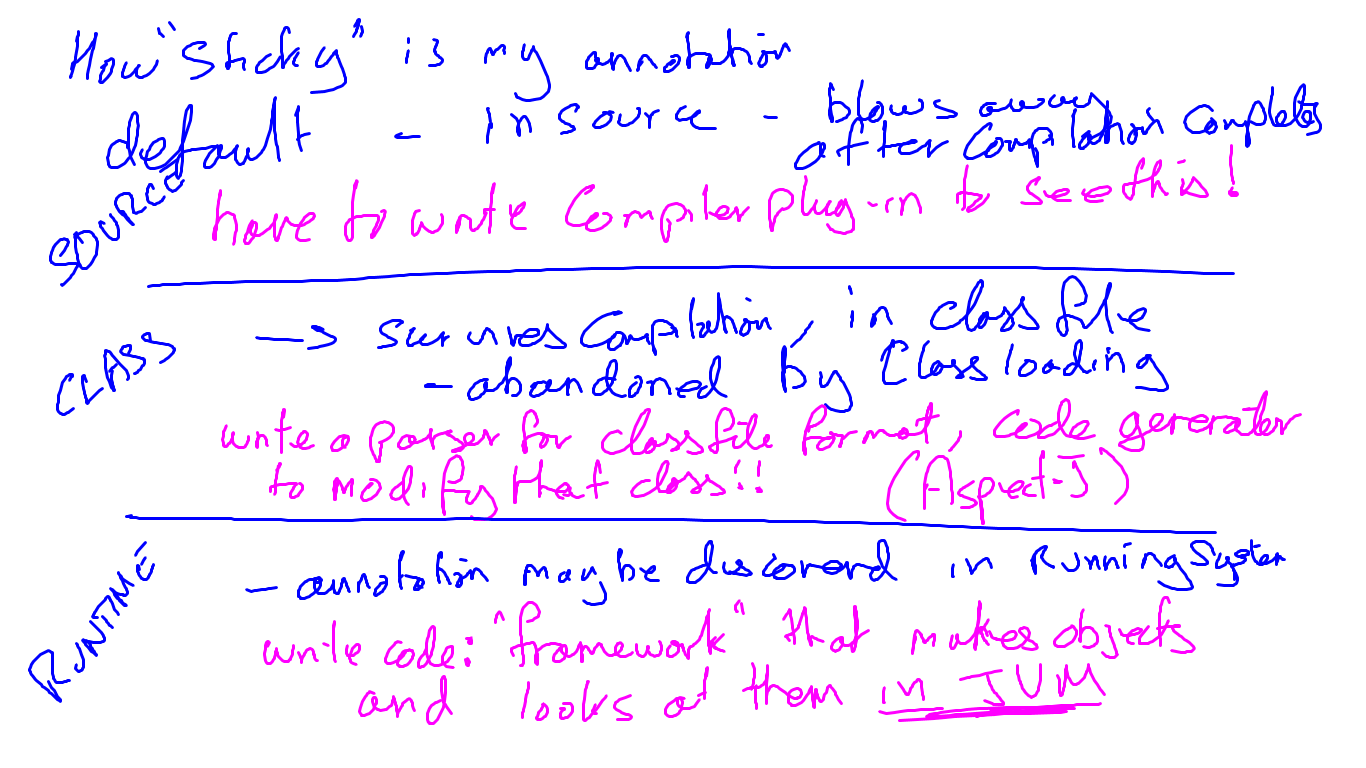 How "Sticky" is my annotation
default - in source - blows away
after compilation completes
SOURCE
have to write compiler plug-in to see this!
CLASS
→ survives compilation, in class file
- abandoned by Classloading
write a parser for classfile format, code generator
to modify that class!! (Aspect-J)
RUNTIME
- annotation may be discovered in Running System
write code: "framework" that makes objects
and looks at them in JVM